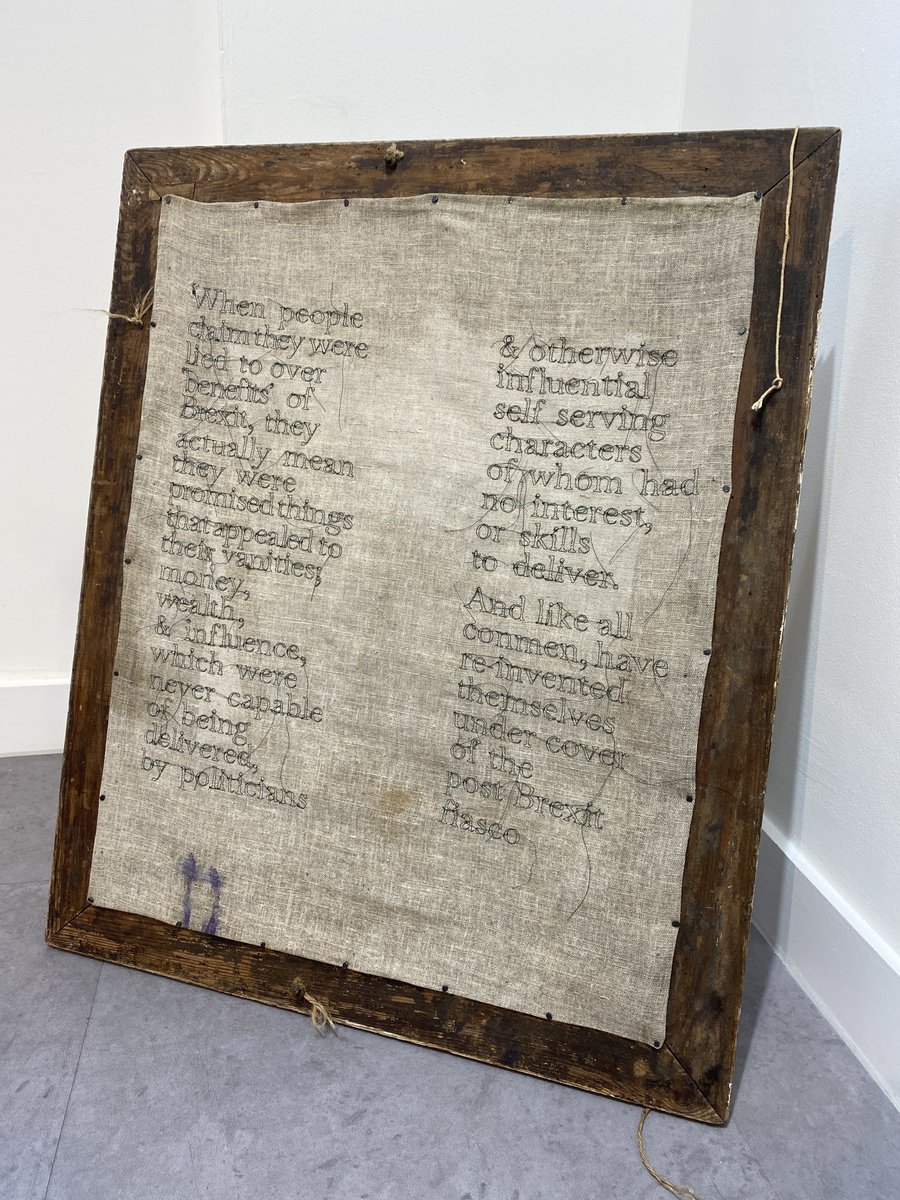 'When people
claim they were
lied to over
'benefits' of
Brexit, they
actually mean
they were
promised things
that appealed to
their vanities;
money,
wealth,
& influence,
which were
never capable
of being
delivered,
by politicians
& otherwise
influential
self serving
characters
of whom had
no interest,
or skills
to deliver.
And like all
conmen, have
re-invented
themselves
under cover
of the
post Brexit
fiasco